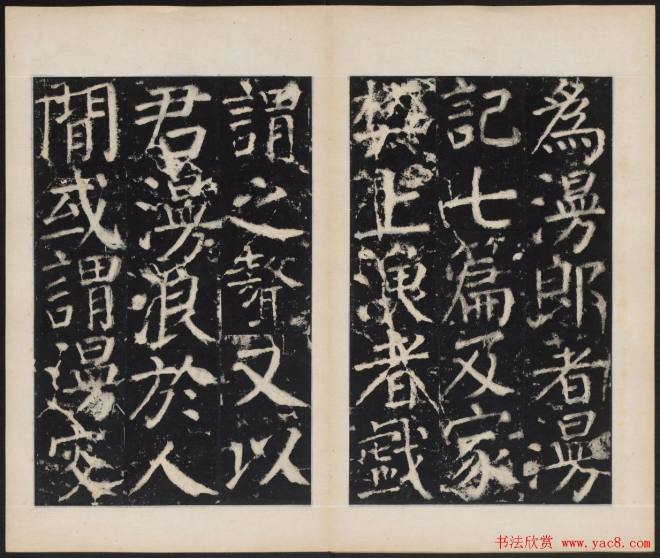 為漫郎者漫
記七篇及家
樊上漁者戲
謂之聱又以
君漫浪於人
間或謂漫叟
书法欣赏 www.yac8.com